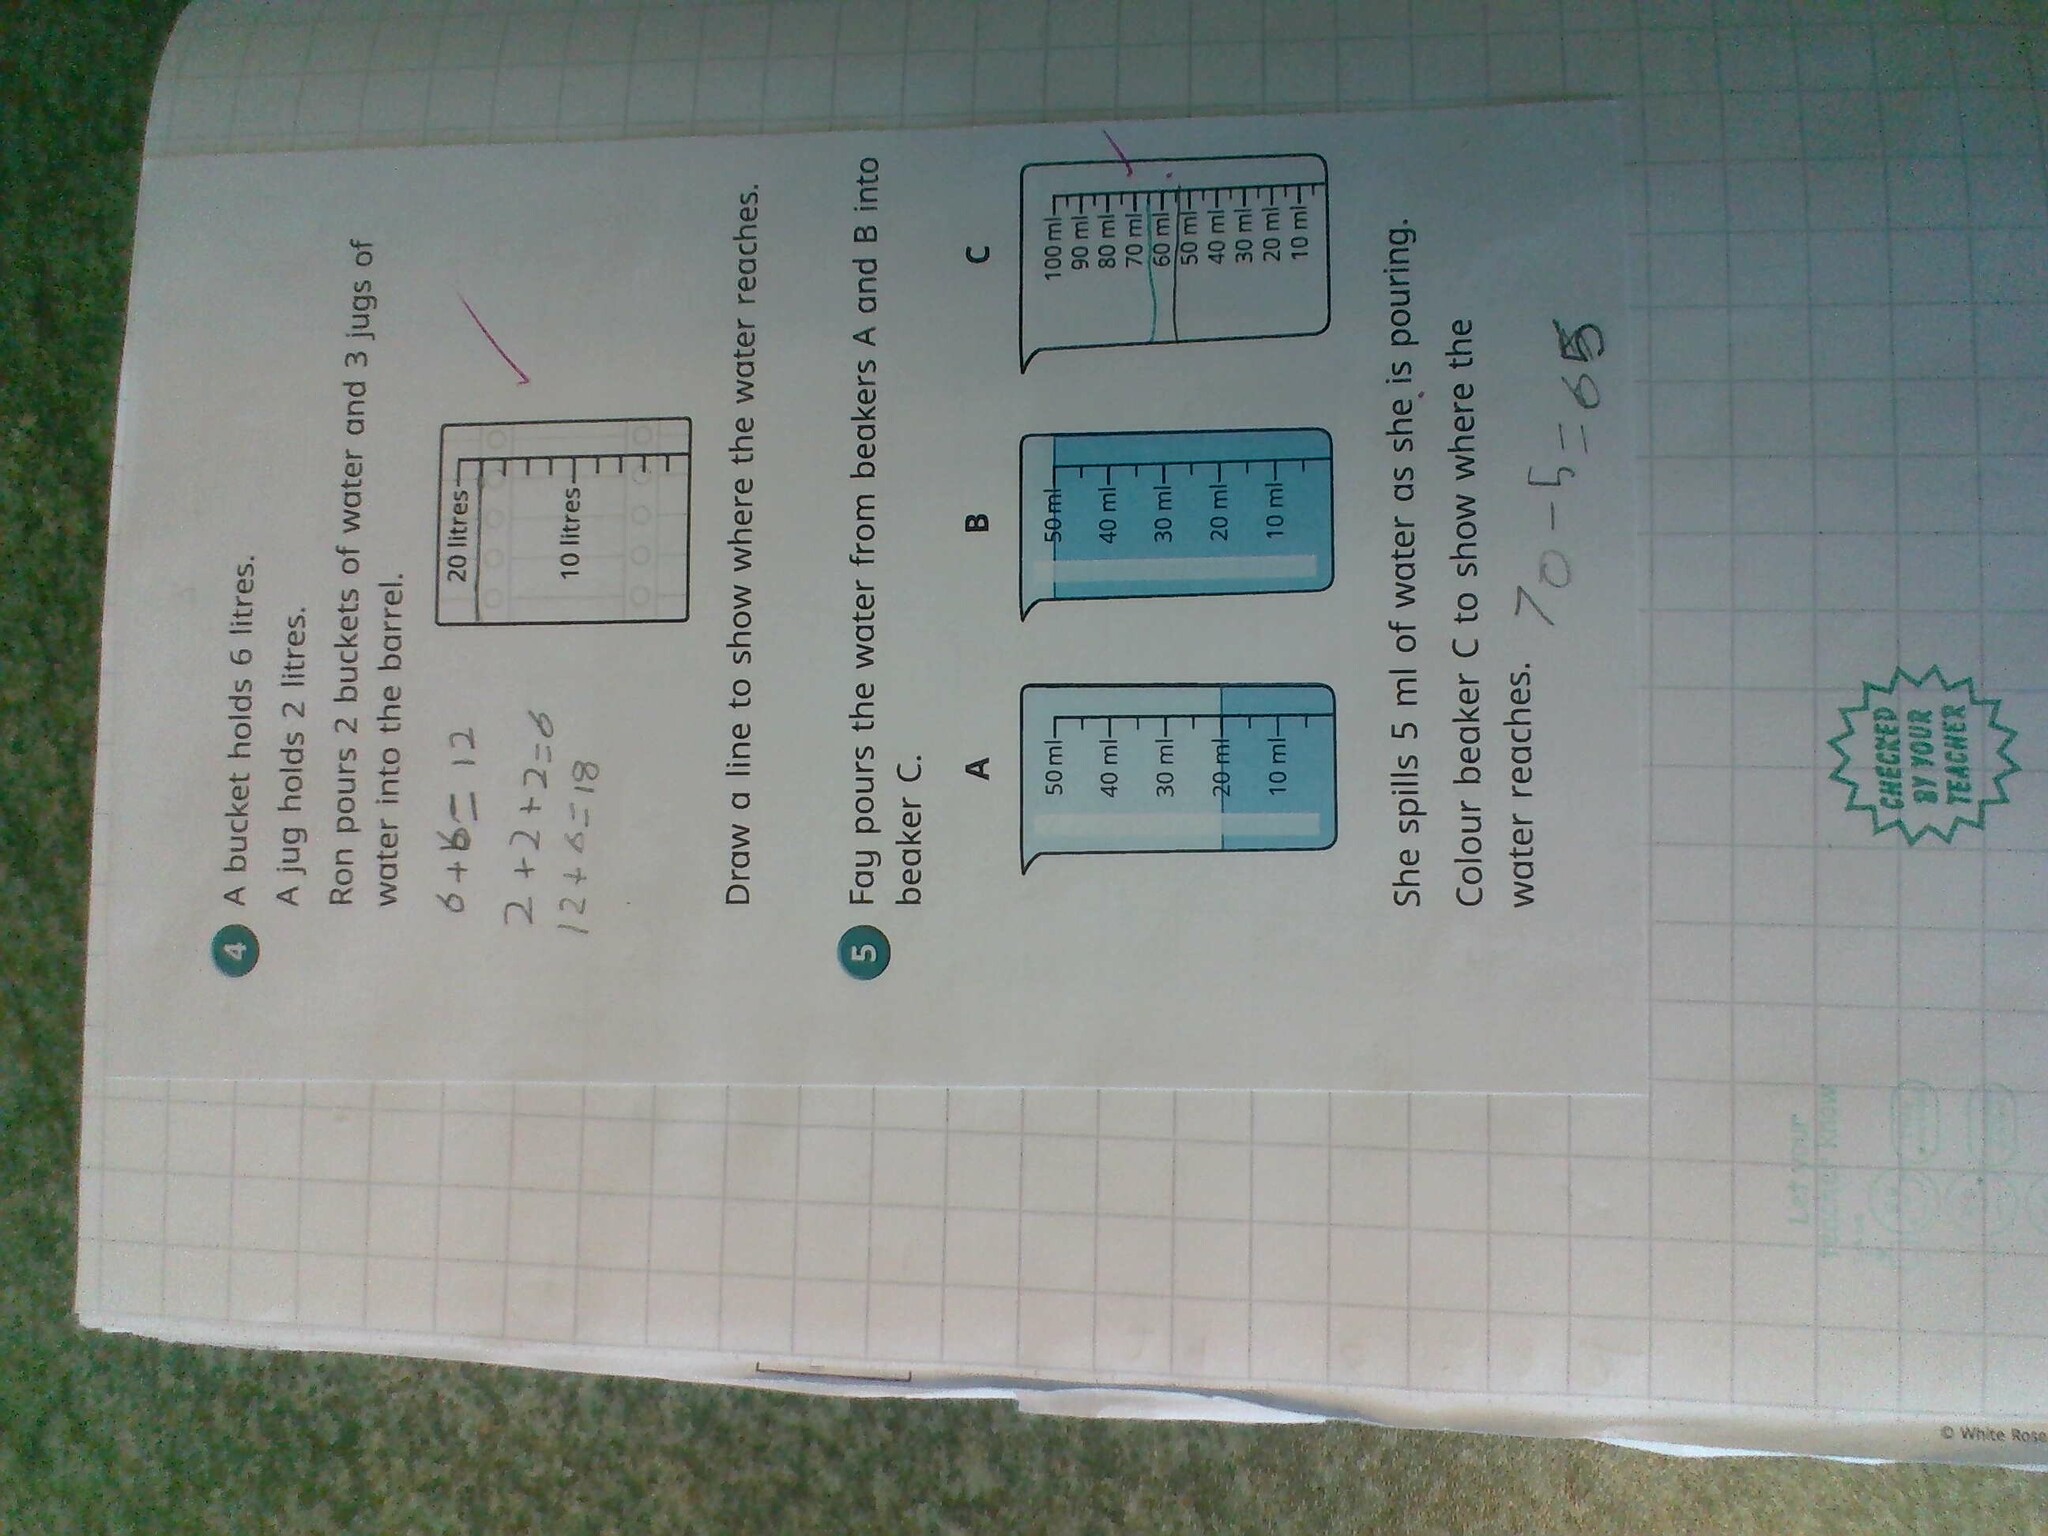 4 A bucket holds 6 litres.
A jug holds 2 litres.
Ron pours 2 buckets of water and 3 jugs of
water into the barrel.
6+6=12
2+2+2=6
12+6=18
20 litres
10 litres
Draw a line to show where the water reaches.
5 Fay pours the water from beakers A and B into
beaker C.
A
50 ml
40 ml
30 ml
20 ml
10 ml
B
50 ml
40 ml
30 ml
20 ml
10 ml
C
100 ml
90 ml
80 ml
70 ml
60 ml
50 ml
40 ml
30 ml
20 ml
10 ml
She spills 5 ml of water as she is pouring.
Colour beaker C to show where the
water reaches.
70-5=65
CHECKED
BY YOUR
TEACHER
Let your
© White Rose